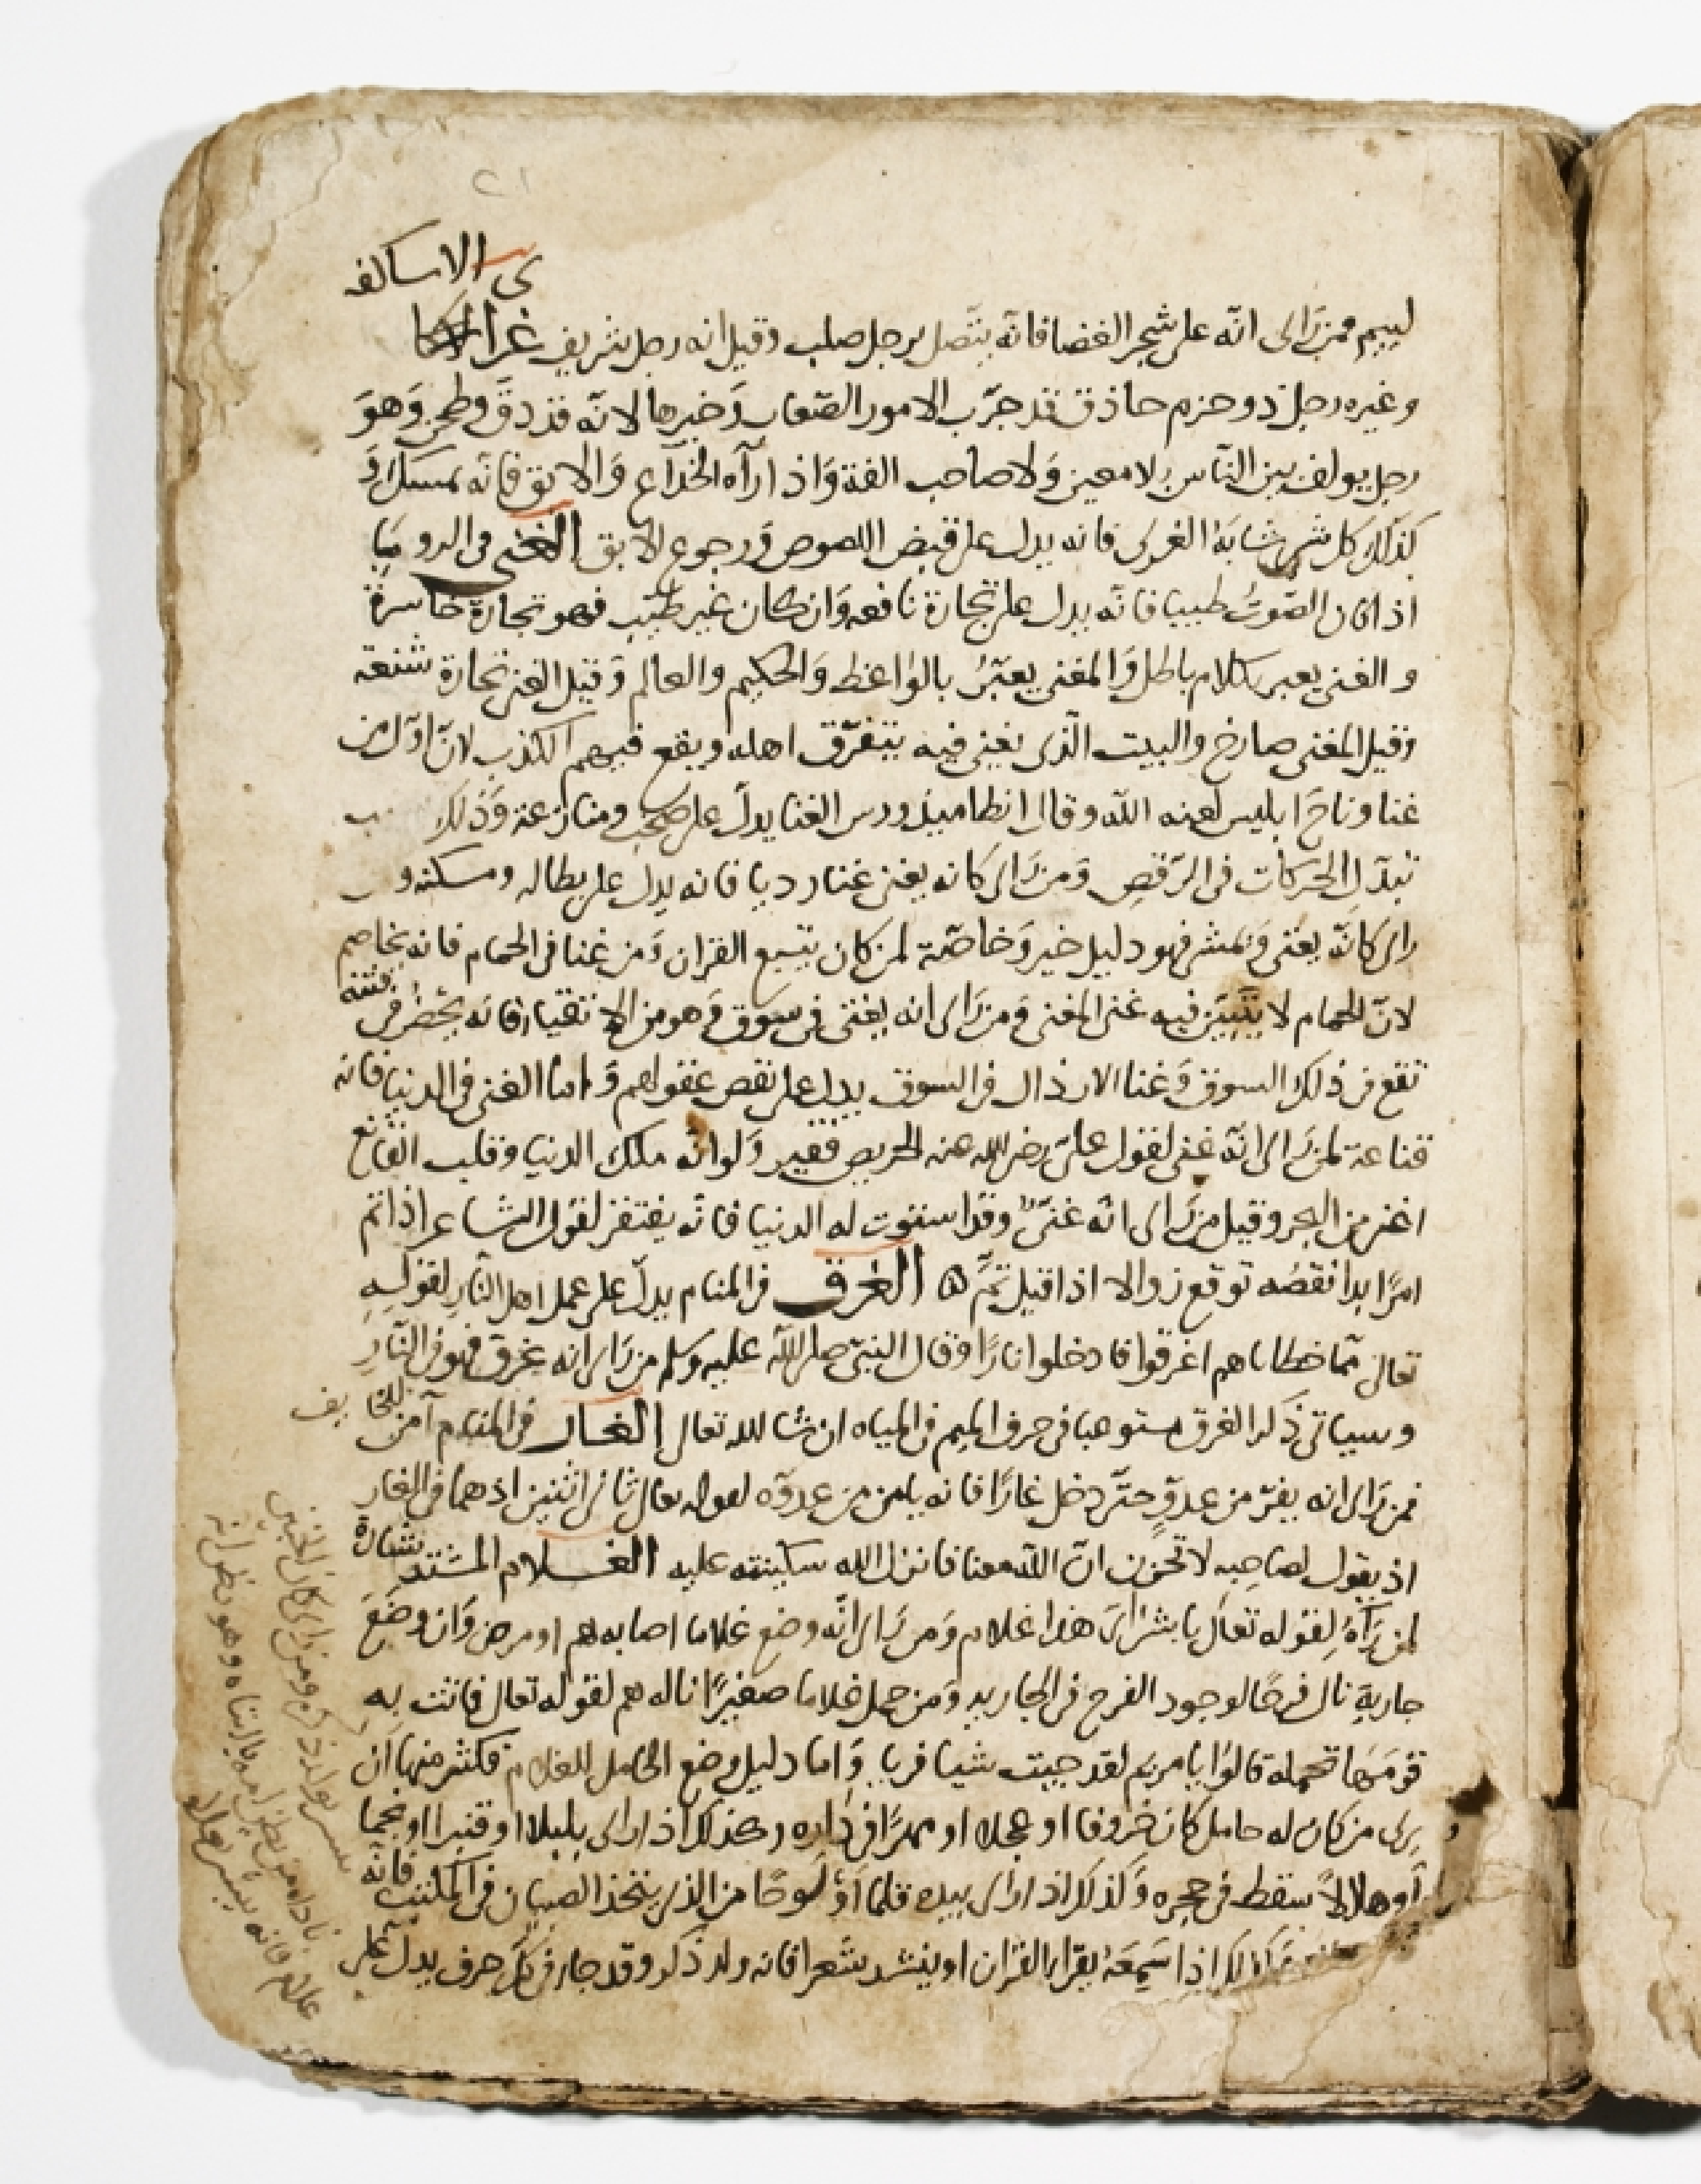 ٢١
ى الاساكفه
لييم ومن راى انه على شجر الغضا فانه يتصل برجل صلب وقيل انه رجل شريف غرا
وغيره رجل ذو حزم حاذق قد جرّب الامور الصّعاب وَخبرها لانّه قد دقّ وطحن وَهوَ
رجل يولف بين النّاس لامعين وَلا صاحب الفة وَاذا رآه الخدّآع وَالابق فانه يمسك وَ
كذلك كل شى شابَهُ الغرى فانه يدل على قبض اللصوص وَرجوع الابق الغنى فى الرويا
اذا كان الصّوتُ طيبا فانّه يدل على تجارة نافعه وَان كان غير طيّبٍ فهو تجارة خاسرة
والغنى يعبر بكلام باطل وَالمغنى يعبّرُ بالواعظ وَالحكيم والعالم وَقيل الغنى تجارة شنعة
وقيل المغنى صارخ والبيت الّذى يغنى فيه يتفرّق اهله ويقع فيهم الكذب لانّ اوّل من
غنا وناح ابليس لعنه الله وقال انطاميذورس الغنا يدلّ على صخب ومنازعة وَذلك
تبدّل الحَركات فى الرّقصِ وَمن رَاى كانه يغنى غنا رديا فانه يدل على بطاله ومسكنه و
راى كانّه يغنى وَيمشى فهو دليل خير وَخاصّة لمن كان يتبع القران وَمن غنا فى الحمام فانه يخاصم
لانّ الحمام لا يتبيّن فيه غنى المغنى وَمن رَاى انه يغنى فى سوق وَهو من الاتقيا فانه يحضر فى فتنه
تقع فى ذلك السوق وَغنا الارذال فى السوق يدل على نقص عقولهم وَامّا الغنى فى الدنيا فانه
قناعة لمن رَاى انّه غنى لقول علىّ رضى الله عنه الحريص فقير وَلو انّه ملك الدنيا وقلب القانع
اغنى من البحر وقيل من رَاى انه غنىٌّ وقد استوت له الدنيا فانّه يفتقر لقول الشاعر اذا تم
امرًا بدا نقصُه توقع زوالا اذا قيل تمَّ ه الغرق فى المنام يدلّ على عمل اهل النّارِ لقولهِ
تعالى ممّا خطاياهم اغرقوا فادخلوا نارًا وقال النبىّ صلى اللّه عليه وسلم من رَاى انه غرق فهو فى النّارِ
وسياتى ذكر الغرق مستوعبا فى حرف الميم فى المياه ان شا الله تعالى الغار فى المنام آمن للخايف
فمن رَاى انه يفرّ من عدوٍّ حتّى دخل غارًا فانه يامن من عدوّه لقوله تعالى ثانى اثنين اذهما فى الغار
اذ يقول لصاحبه لا تحزن انّ اللّه معنا فانزل الله سكينته عليه الغلام المشتد بشارة
لمن رَآهُ لِقوله تعالى يا بشراى هذا غلام وَمن رَاى انّه وضع غلاما اصابه هم او مرض وَان وضَعَ
جارية نال فرحًا لوجود الفرج فى الجاريه وَمن حمل غلاما صغيرًا ناله هم لقوله تعالى فاتت بِه
قومَهَا تحمله قالوا يا مريَم لقد جيت شيا فريا وَاما دليل وضع الحامل للغلام فكثير منها ان
يرى من كان له حامل كان خروفا او عجلا او مهرًا فى دَاره وكذلك اذا راى بلبلا او قنبرا او نجما
أو هلالاً سقط فى حجره وَكذلك اذا راى بيده قلما اَو لَوحًا من الذى يتخذ الصبيان فى المكتب فانّه
وَكذلك اذا سَمِعَهُ يقرا القران او ينشد شعرا فانه ولد ذكر وقد جا فى كل حرف يدل على